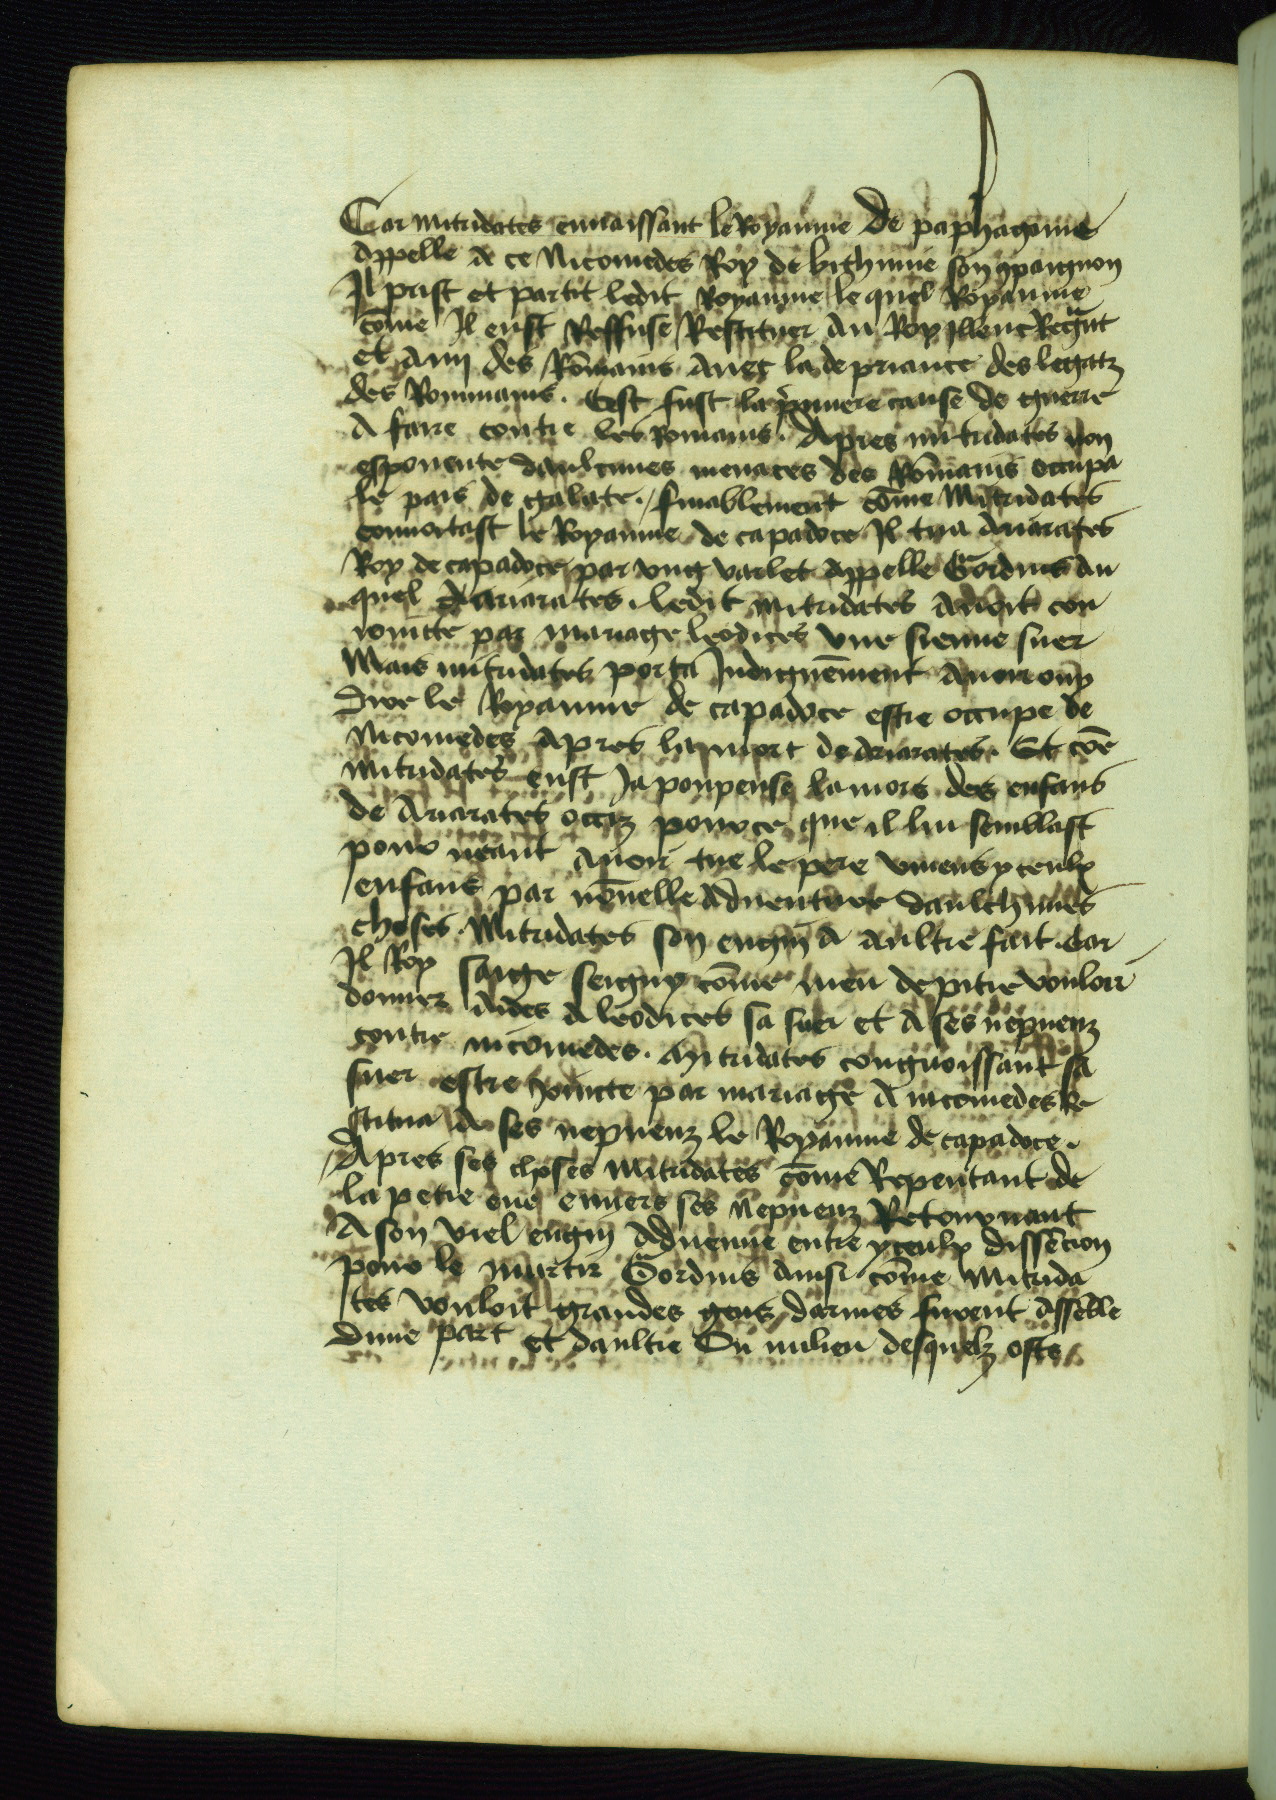 Car mitridates envaissant le Royaume de paphagonie
Appelle a ce Nicomedes Roy de bithinie son ꝯpaignon
Il prist et partit ledit Royaume le quel Royaume
cōme Il eust Reffuse Restituer au Roy Illenc Regnāt
et amy des Rōmains avec la depriance des legatz
des Rommains. Cest fust la p̄miere cause de guerre
A faire contre les Romains. Apres mitridates non
esponente daulcunes menaces des Rōmains occupa
le pais de galate. / finablement cōme Mitridates
convoitast le Royaume de capadoce Il tua Ariarates
Roy de capadoce par ung varlet appelle Gordius du
quel Ariarates. ledit mitridates avoit con
ioincte par mariage leodices une sienne suer
Mais mitridates porta Indignēment avoir ouy
Dire le Royaume de capadoce estre occupe de
Nicomedes apres la mort de driarates. Et cōe
mitridates eust Ja pourpense la mors des enfans
de Ariarates occiz pource que il lui semblast
pour neant avoir tue le pere vivens yceulx
enfans par nōuelle Adventure daulchunes
choses. Mitridates son engin A aultre fait. Car
Il Roy saige seigny cōme meu de pitie vouloir
donner aides a leodices sa suer et A ses nepueuz
contre nicomedes. Mitridates congnoissant sa
suer estre joincte par mariage A nicomedes Re
stitua A ses nepueuz le Royaume de capadoce.
Apres ses choses Mitridates cōme Repentant de
la petie eue envers ses nepueuz Retournant
A son viel engin Advenue entre yceulx dissēcion
pour le murtir Gordius ainsi cōme Mitrida
tes vouloit grandes gens darmes furent assēble
Dune part et daultre Ou milieu desquelz ostz